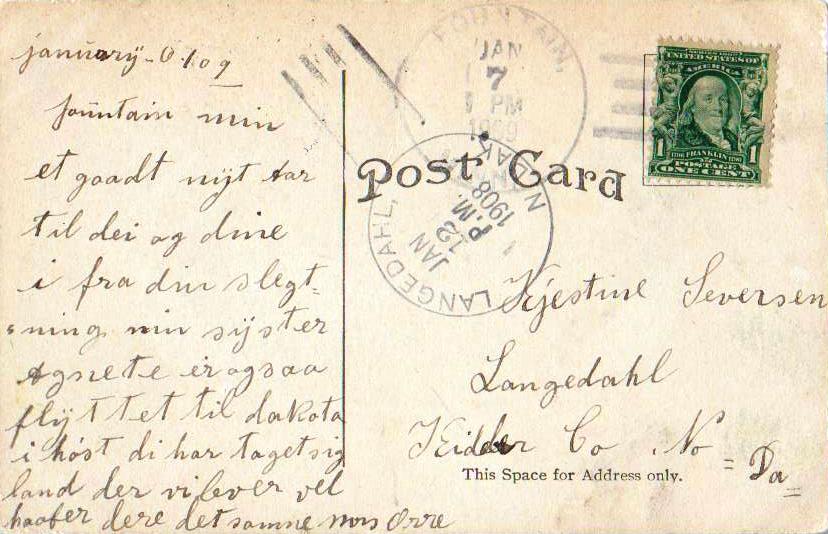 january - 0109
fountain min
et goadt nyt Aar
til dei og dine
i fra din slegt=
sning min syster
Agnete er ogsaa
flyttet til dakota
i høst di har taget sig
land der vi lever vel
haaber dere det samme mrs Orre
FOUNTAIN,
JAN
7
PM
1909
Post Card
LANGEDAHL, N. DAK.
JAN
12
P.M.
1908
SERIES 1902
UNITED STATES OF
AMERICA
1 FRANKLIN 1
POSTAGE
ONE CENT
Kjestine Seversen
Langedahl
Kidder Co. No = Da =
This Space for Address only.